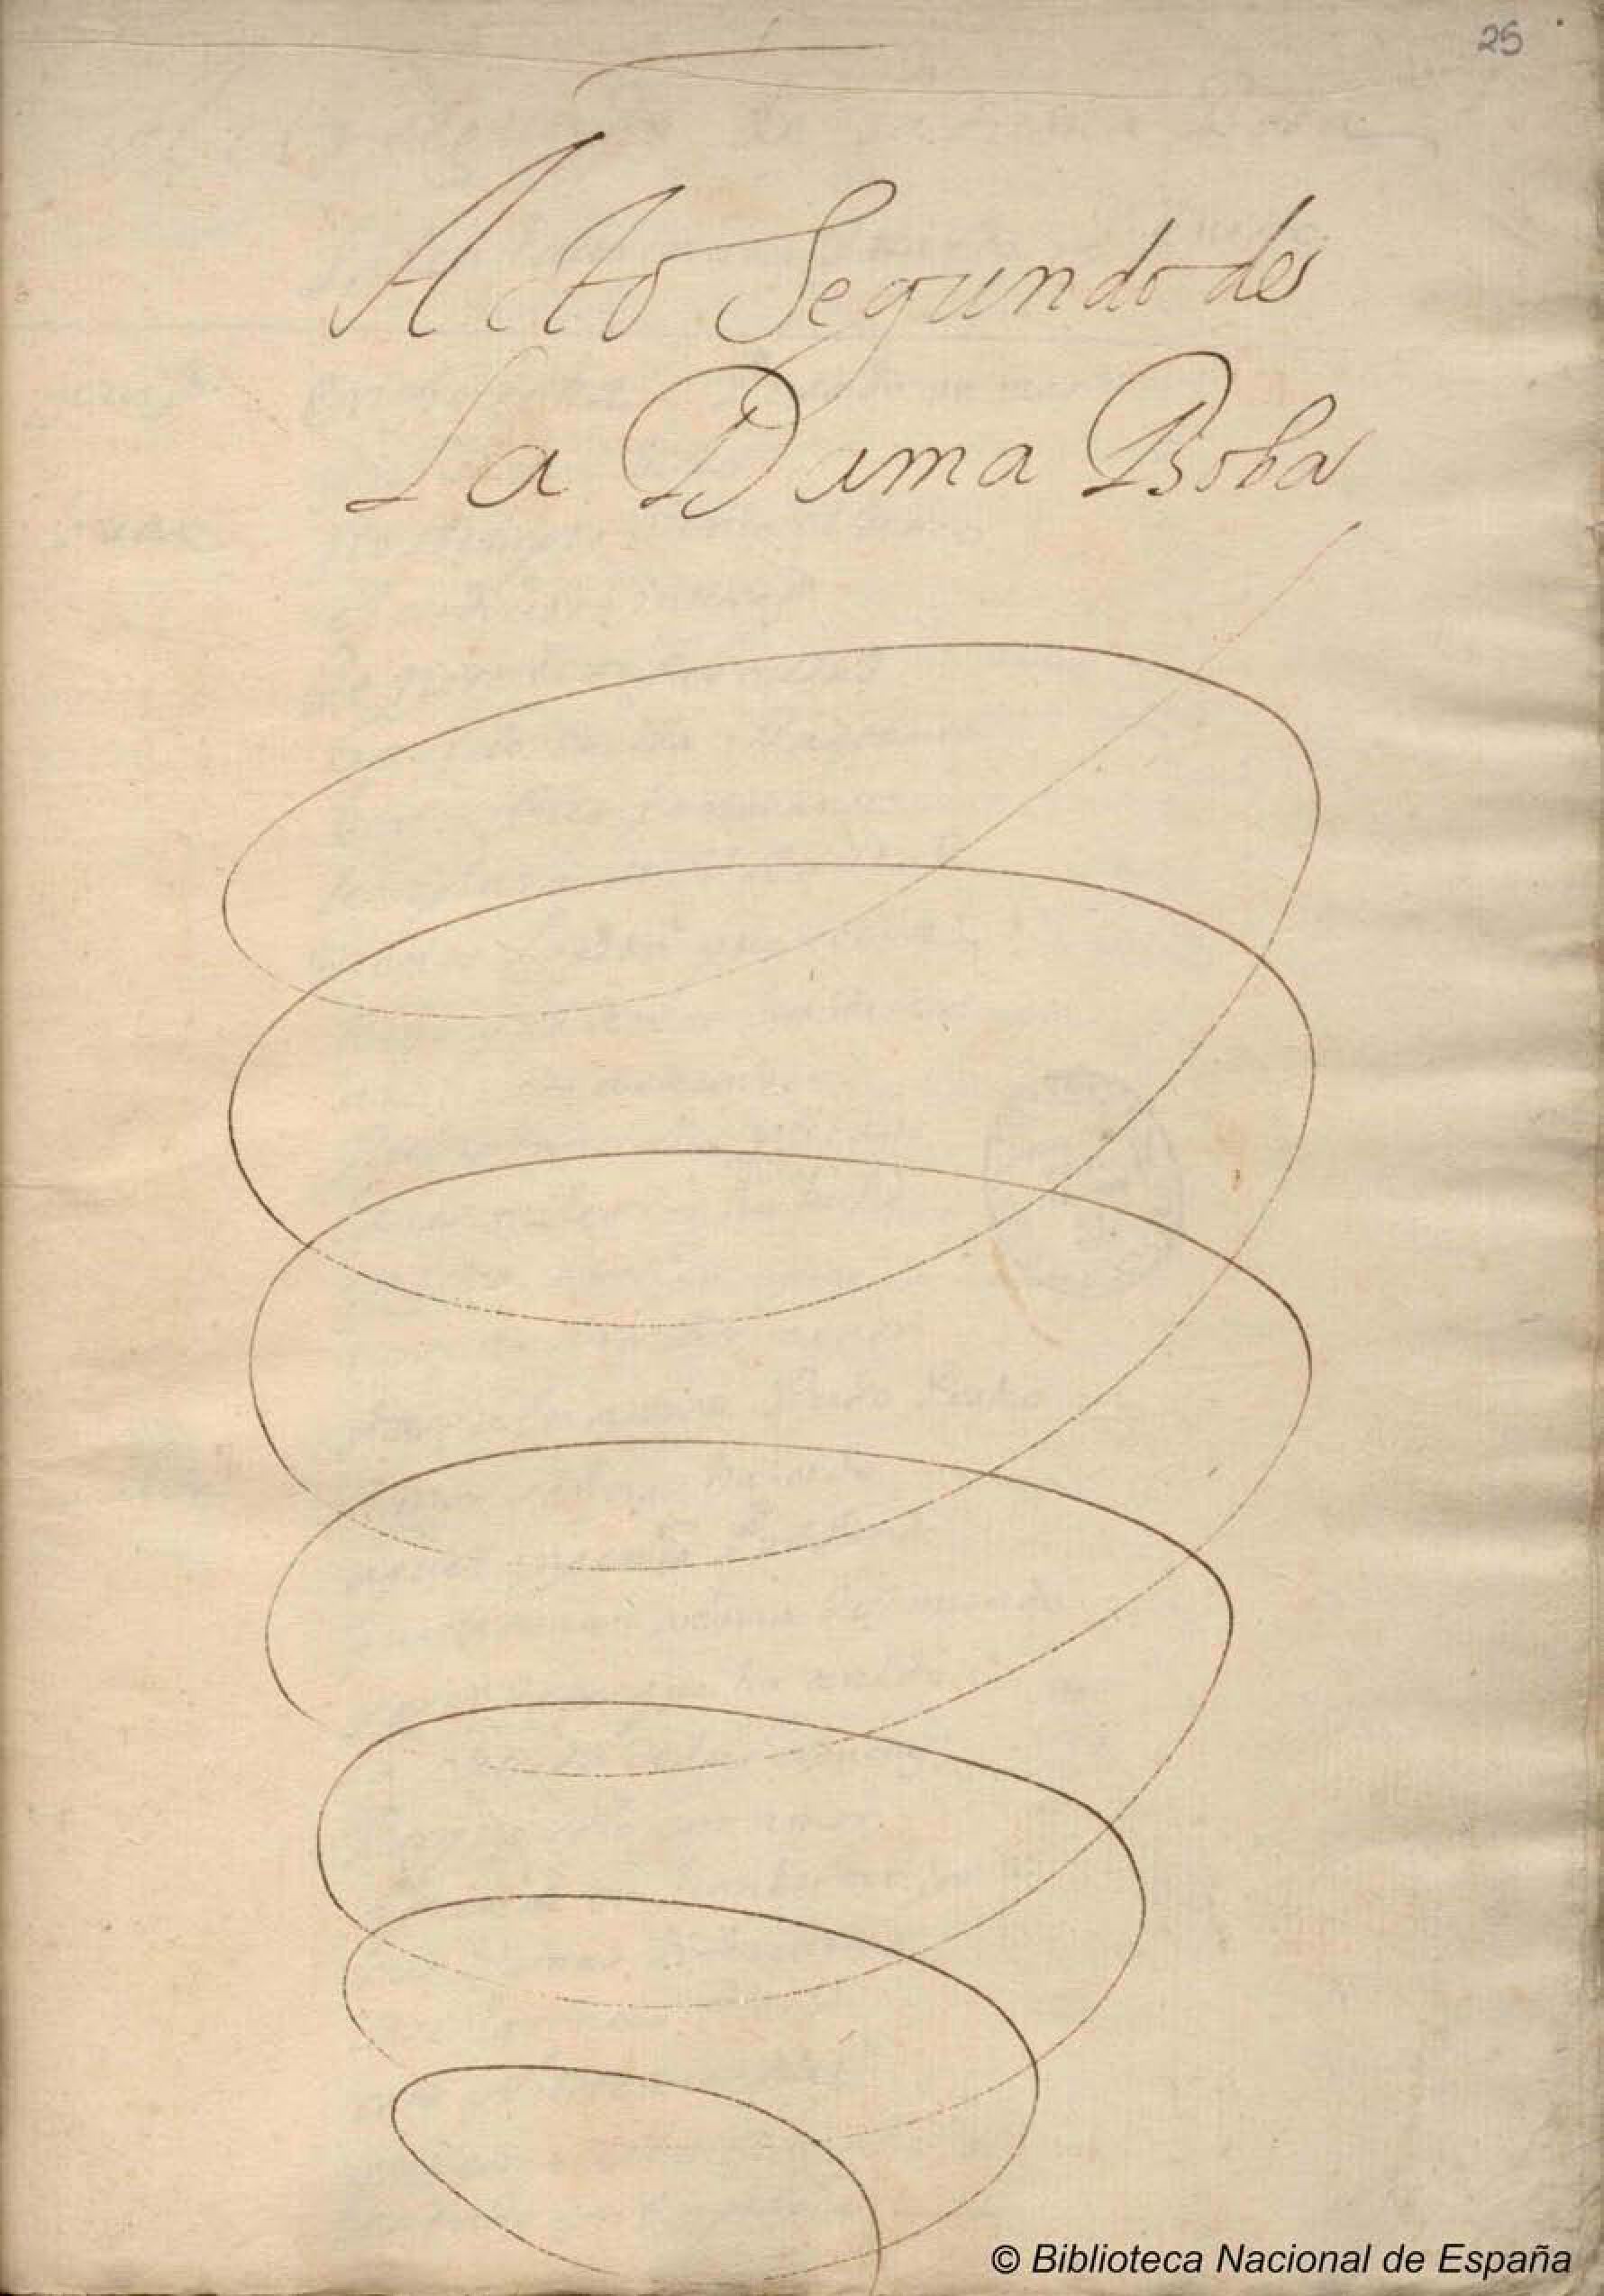 25
Acto Segundo de
La Dama Boba
© Biblioteca Nacional de España